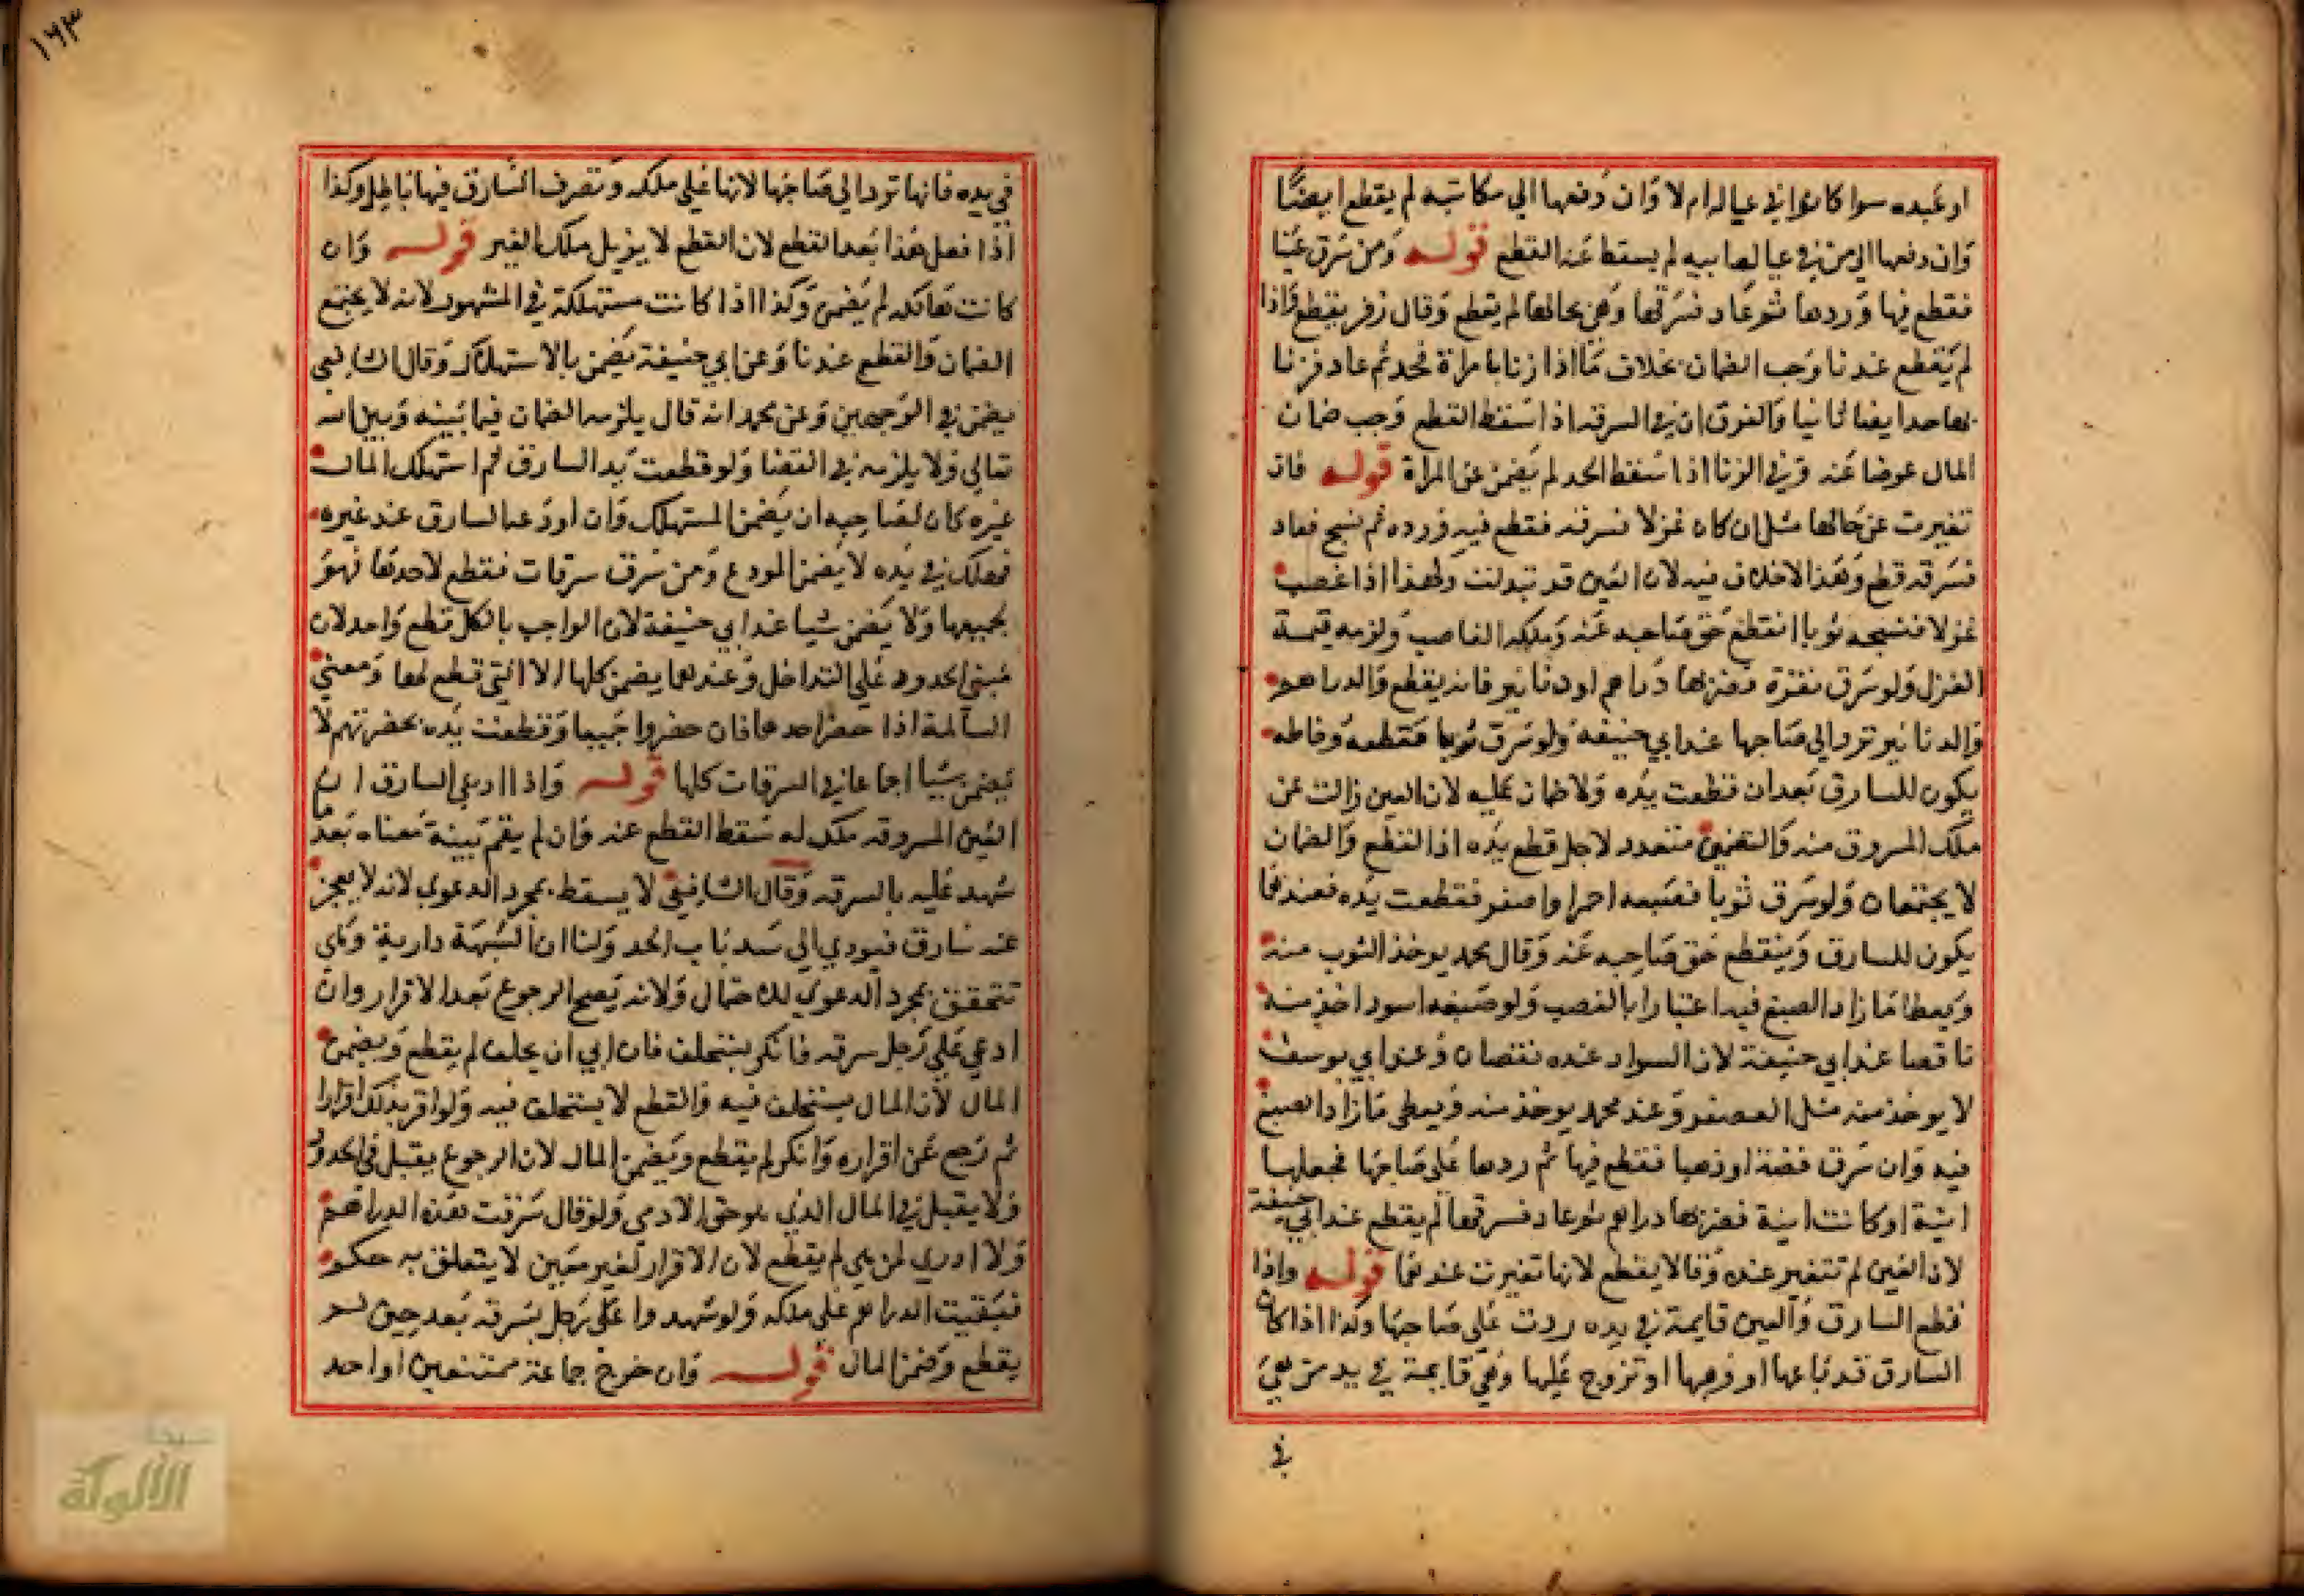 او عبده سوا كانوا في عياله ام لا وان دفعها الي مكاتبه لم يقطع ايضا
وان دفعها الي من في عيال ابيه لم يسقط عنه القطع قوله ومن سرق عينا
فقطع فيها وردها ثم عاد فسرقها وهي بحالها لم يقطع وقال زفر يقطع واذا
لم يقطع عندنا وجب الضمان بخلاف ما اذا زنا بامراة فحد ثم عاد فزنا
بها حد ايضا ثانيا والفرق ان في السرقه اذا اسقط القطع وجب ضمان
المال عوضا عنه وفي الزنا اذا سقط الحد لم يضمن عن المراة قوله فان
تغيرت عن حالها مثل ان كان غزلا فسرقه فقطع فيه ورده ثم نسج فعاد
فسرقه قطع وهذا لا خلاف فيه لان العين قد تبدلت ولهذا اذا غصب
غزلا فنسجه ثوبا انقطع حق صاحبه عنه وملكه الغاصب ولزمه قيمة
الغزل ولو سرق نقرة فضربها دراهم او دنانير فانه يقطع والدراهم
والدنانير ترد الي صاحبها عند ابي حنيفه ولو سرق ثوبا فقطعه وخاطه
يكون للسارق بعد ان قطعت يده ولا ضمان عليه لان العين زالت عن
ملك المسروق منه والتضمين متعذر لاجل قطع يده اذ القطع والضمان
لا يجتمعان ولو سرق ثوبا فصبغه احمر او اصفر فقطعت يده فعندهما
يكون للسارق وينقطع حق صاحبه عنه وقال محمد يوخذ الثوب منه
ويعطا ما زاد الصبغ فيه اعتبارا بالغصب ولو صبغه اسود اخذ منه
ناقصا عند ابي حنيفة لان السواد عنده نقصان وعند ابي يوسف
لا يوخذ منه مثل العصفر وعند محمد يوخذ منه ويعطى ما زاد الصبغ
فيه وان سرق فضة او ذهبا فقطع فيها ثم ردها على صاحبها فجعلها
انية او كانت انية فضربها دراهم ثم عاد فسرقها لم يقطع عند ابي حنيفة
لان العين لم تتغير عنده وقالا يقطع لانها تغيرت عندهما قوله واذا
قطع السارق والعين قايمة في يده ردت علي صاحبها وكذا اذا كان
السارق قد باعها او وهبها او تزوج عليها وهي قايمة في يد من هي
في
١٦٣
في يده فانها ترد الي صاحبها لانها علي ملكه وتصرف السارق فيها باطل وكذا
اذا فعل هذا بعد القطع لان القطع لا يزيل ملك الغير قوله وان
كانت هالكه لم يضمن وكذا اذا كانت مستهلكة في المشهور لانه لا يجتمع
الضمان والقطع عندنا وعن ابي حنيفة يضمن بالاستهلاك وقال الشافعي
يضمن في الوجهين وعن محمد انه قال يلزمه الضمان فيما بينه وبين الله
تعالي ولا يلزمه في القضا ولو قطعت يد السارق ثم استهلك المال
غيره كان لصاحبه ان يضمن المستهلك وان اودعها السارق عند غيره
فهلك في يده لا يضمن المودع ومن سرق سرقات فقطع لاحدها فهو
بجميعها ولا يضمن شيا عند ابي حنيفة لان الواجب بالكل قطع واحد لان
مبني الحدود علي التداخل وعندهما يضمن كلها الا التي قطع لها ومعني
المسالة اذا حضر احدها فان حضروا جميعا وقطعت يده بحضرتهم لا
يضمن شيا اجماعا في السرقات كلها قوله واذا ادعي السارق ان
العين المسروقه ملك له سقط القطع عنه وان لم يقم بينة معناه بعد ما
شهد عليه بالسرقه وقال الشافعي لا يسقط بمجرد الدعوي لانه لا يعجز
عنه سارق فيودي الي سد باب الحد ولنا ان الشبهة دارية وهي
تتحقق بمجرد الدعوي للاحتمال ولانه يصح الرجوع بعد الاقرار وان
ادعي علي رجل سرقه فانكر يستحلف فان ابي ان يحلف لم يقطع ويضمن
المال لان المال يستحلف فيه والقطع لا يستحلف فيه ولو اقر بذلك اقرارا
ثم رجع عن اقراره وانكر لم يقطع ويضمن المال لان الرجوع يقبل في الحدود
ولا يقبل في المال الذي هو حق الادمي ولو قال سرقت هذه الدراهم
ولا ادري لمن هي لم يقطع لان الاقرار لغير معين لا يتعلق به حكم
فبقيت الدراهم على ملكه ولو شهدوا على رجل بسرقه بعد حين لم
يقطع وضمن المال قوله وان خرج جماعة ممتنعين او احد
الألوكة